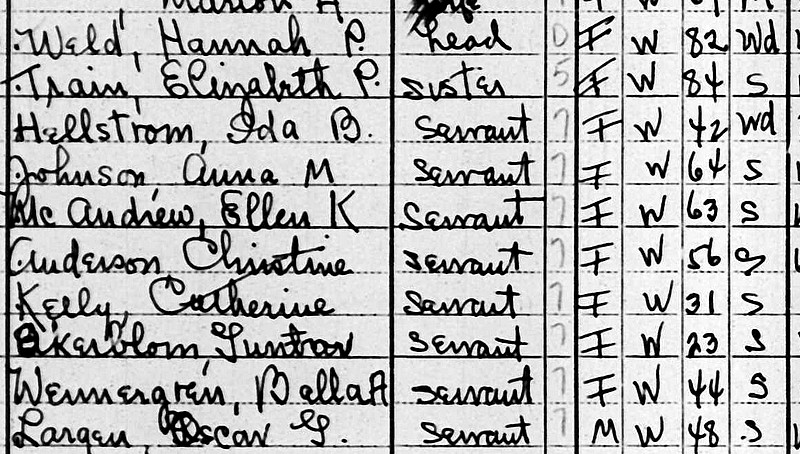 Marion A
Weld, Hannah P. head 0 F W 82 Wd
Train, Elizabeth P. sister 5 F W 84 S
Hellstrom, Ida B. Servant 7 F W 42 Wd
Johnson, Anna M Servant 7 F W 64 S
McAndrew, Ellen K Servant 7 F W 63 S
Anderson, Christine servant 7 F W 56 S
Kelly, Catherine Servant 7 F W 31 S
Servant 7 F W 23 S
Wennergren, Balla A servant 7 F W 44 S
Largen, Oscar G. Servant 7 M W 48 S